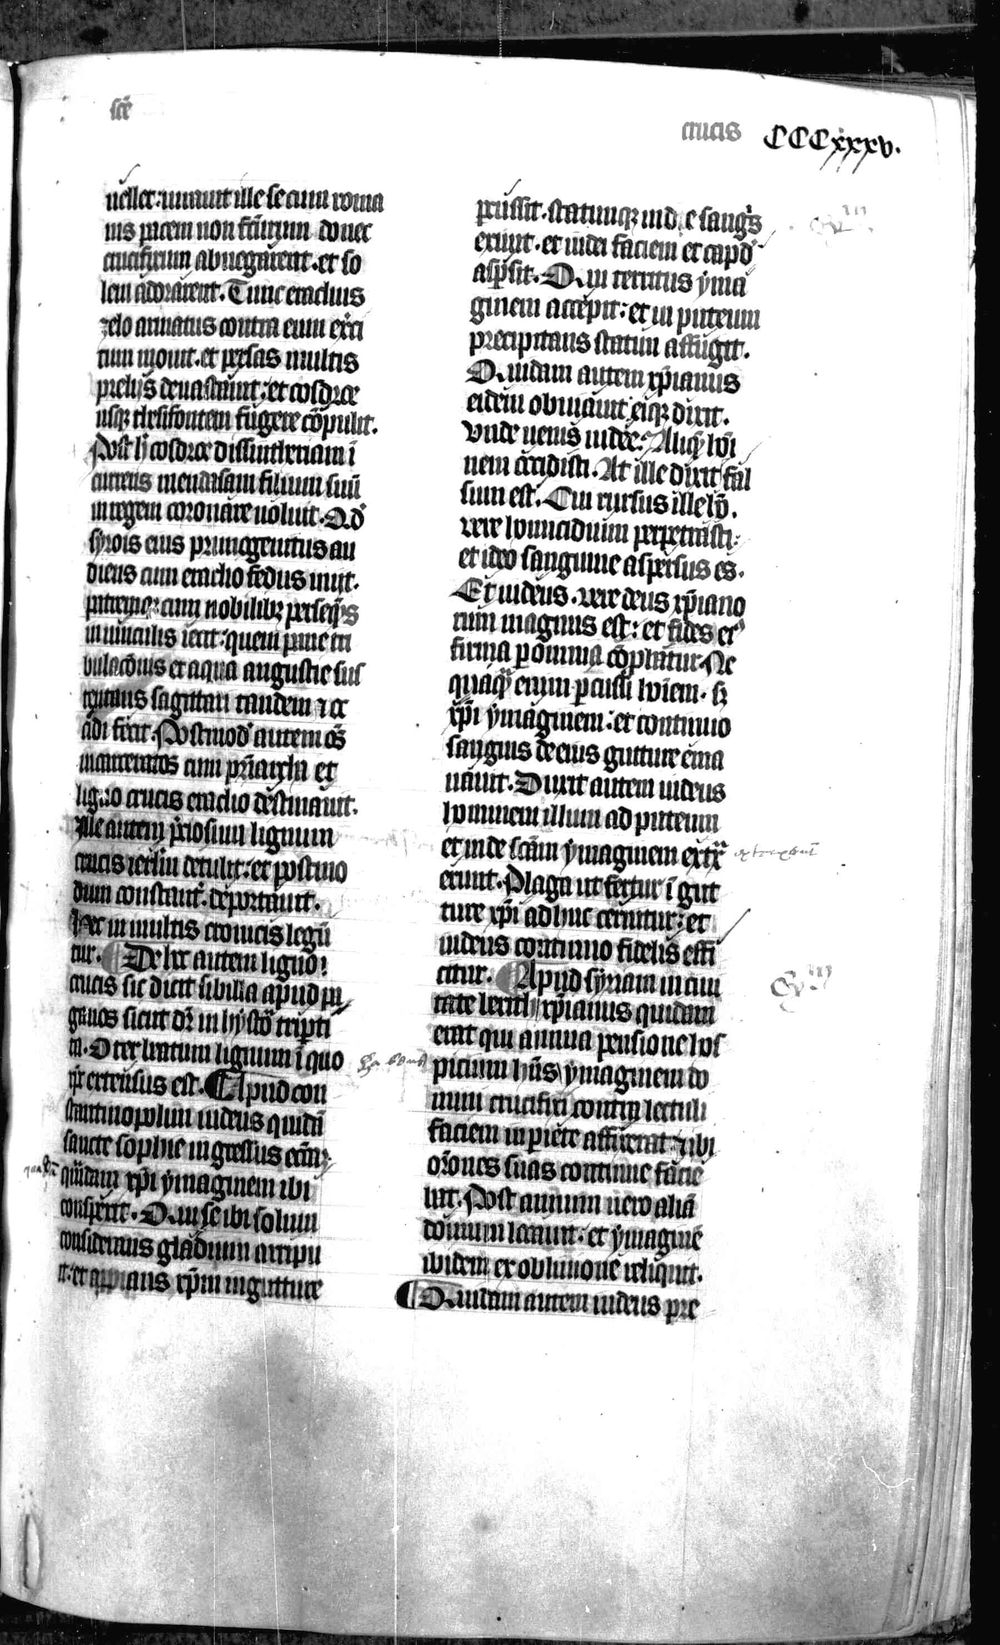 scē
crucis CCCxxxv.
uellet. iurauit ille se cum roma
nis pacem non facturum donec
crucifixum abnegarent. et so
lem adorarent. Tunc eraclius
zelo armatus contra eum exerci
tum mouit. et persas multis
prelijs deuastauit. et cosdroe
usqꝫ thesifontem fugere cōpulit.
Post h cosdroe dissintheriam ī
curreus medasam filium suū
in regem coronare uoluit. Qd̓
syrois eius primogenitus au
diens cum eraclio fedus iniit.
patremqꝫ cum nobilibꝫ persequēs
in uinculis iecit. quem pane tri
bulacōnis et aqua angustie sus
tentans sagittari tandem et oc
cidi fecit. Postmod̓ autem om̄s
incarceratos cum patriarcha et
ligno crucis eraclio destinauit.
Ille autem p̄ciosum lignum
crucis ierl̄m detulit. et postmo
dum constant. deportauit.
Hec in multis cronicis legū
tur. De hec autem ligno
crucis sic dicit sibilla apud pa
ganos sicut dr̄ in hystō triperti
ta. O ter beatum lignum ī quo
xp̄c extensus est. Apud con
stantinopolim iudeus quidā
sancte sophie ingressus eccl̄iam
quandam xp̄i ymaginem ibi
conspexit. Qui se ibi solum
considerans gladium arripu
it. et appians xp̄m in gutture
percussit. statimqꝫ inde sangis
exiuit. et iudei faciem et capd̓
asp̄sit. Qui territus yma
ginem accepit. et in puteum
precipitans statim affugit.
Quidam autem xp̄ianus
eidem obuiauit eiqꝫ dixit.
Unde uenis iudee. Aliqꝫ hoi
nem occidisti. At ille dixit fal
sum est. Cui rursus ille hō.
vere homicidium perpetrasti.
et ideo sanguine aspersus es.
Et iudeus. vere deus xp̄iano
rum magnus est. et fides ei
firma p omnia cōprobatur. Ne
quaqꝫ enim percussi hoīem. sꝫ
xp̄i ymaginem. et continuo
sanguis de eius gutture ema
nauit. Duxit autem iudeus
hominem illum ad puteum
et inde scām ymaginem extra
xerunt. Plaga ut fertur ī gut
ture xp̄i adhuc cernitur. et
iudeus continuo fidelis effi
citur. Apud syriam in ciui
tate berith xp̄ianus quidam
erat qui annua pensione hos
picium hn̄s ymaginem do
mini crucifixi contra lectuli
faciem in pariete affixerat et ibi
orōnes suas continue facie
bat. Post annum uero aliā
domum locauit. et ymaginē
ibidem ex obliuione reliquit.
Quidam autem iudeus pre